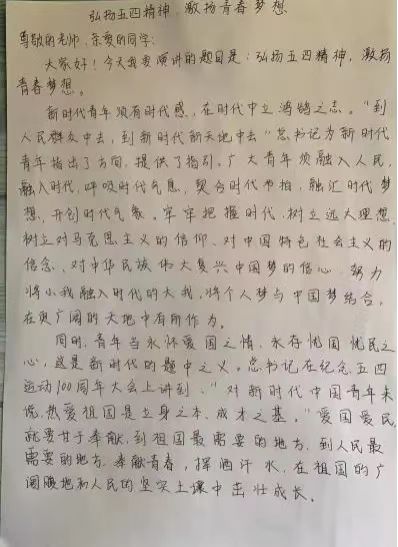 弘扬五四精神、激扬青春梦想
尊敬的老师、亲爱的同学:
大家好!今天我要演讲的题目是:弘扬五四精神,激扬
青春梦想。
新时代青年须有时代感,在时代中立鸿鹄之志。"到
人民群众中去,到新时代新天地中去"总书记为新时代
青年指出了方向,提供了指引。广大青年须融入人民,
融入时代,呼吸时代气息,契合时代节拍,融汇时代梦
想,开创时代气象。牢牢把握时代,树立远大理想,
树立对马克思主义的信仰、对中国特色社会主义的
信念、对中华民族伟大复兴中国梦的信心,努力
将小我融入时代的大我,将个人梦与中国梦结合,
在更广阔的天地中有所作为。
同时,青年当永怀爱国之情、永存忧国忧民之
心,这是新时代的题中之义。总书记在纪念五四
运动100周年大会上讲到,"对新时代中国青年来
说,热爱祖国是立身之本、成才之基。"爱国爱民,
就要甘于奉献,到祖国最需要的地方、到人民最
需要的地方,奉献青春,挥洒汗水,在祖国的广
阔腹地和人民的坚实土壤中茁壮成长。